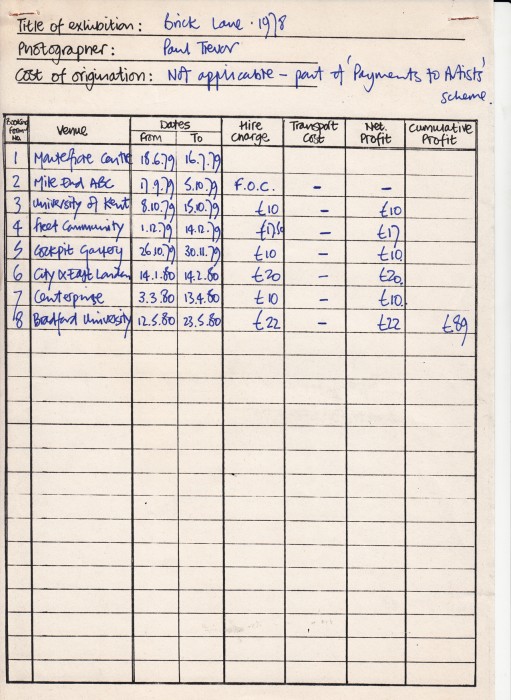 Title of exhibition: Brick Lane · 1978
Photographer: Paul Trevor
Cost of origination: Not applicable – part of 'Payments to Artists' scheme.
Booking form No. Venue Dates From To Hire charge Transport Cost Net. Profit Cumulative Profit
1 Montefiore Centre 18.6.79 16.7.79
2 Mile End ABC 17.9.79 5.10.79 F.O.C. – –
3 University of Kent 8.10.79 15.10.79 £10 – £10
4 Fleet Community 1.12.79 14.12.79 – £17
5 Cockpit Gallery 26.10.79 30.11.79 £10 – £10
6 City & East London 14.1.80 14.2.80 £20 – £20
7 Centerprise 3.3.80 13.4.80 £10 – £10
8 Bradford University 12.5.80 23.5.80 £22 – £22 £89